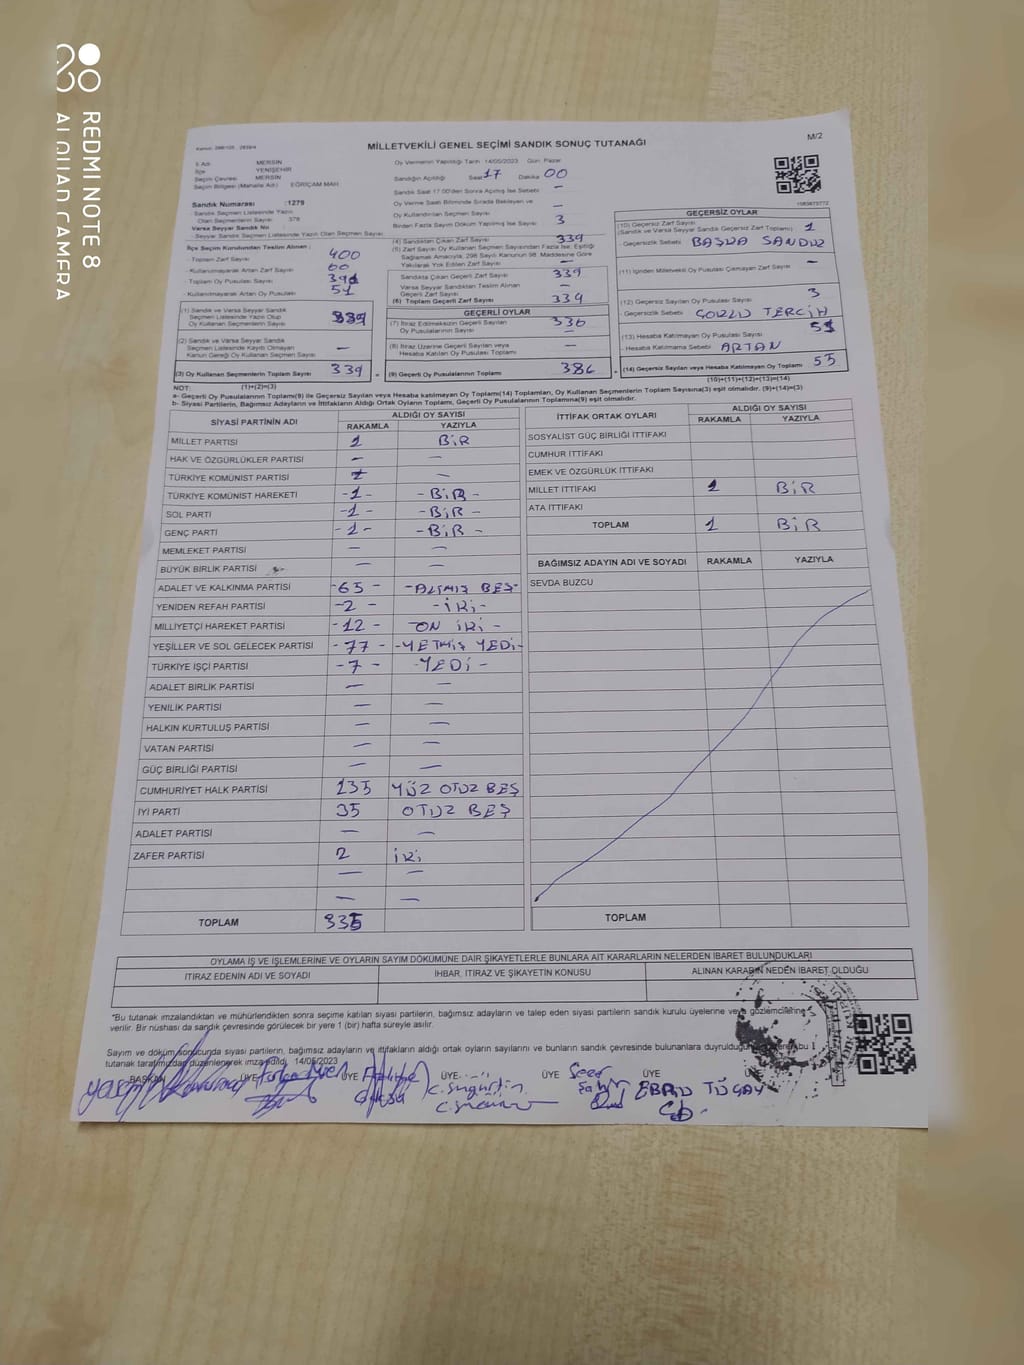 REDMI NOTE 8
AI QUAD CAMERA
MİLLETVEKİLİ GENEL SEÇİMİ SANDIK SONUÇ TUTANAĞI
M/2
İl Adı : MERSİN
İlçe : YENİŞEHİR
Seçim Çevresi : MERSİN
Seçim Bölgesi (Mahalle Adı) : EĞRİÇAM MAH.
Sandık Numarası :1279
Sandık Seçmen Listesinde Yazılı Olan Seçmenlerin Sayısı : 378
Varsa Seyyar Sandık No
Seyyar Sandık Seçmen Listesinde Yazılı Olan Seçmen Sayısı
İlçe Seçim Kurulundan Teslim Alınan :
- Toplam Zarf Sayısı 400
- Kullanılmayarak Artan Zarf Sayısı 60
- Toplam Oy Pusulası Sayısı
- Kullanılmayarak Artan Oy Pusulası 51
(1) Sandık ve Varsa Seyyar Sandık Seçmen Listesinde Yazılı Olup Oy Kullanan Seçmenlerin Sayısı 339
(2) Sandık ve Varsa Seyyar Sandık Seçmen Listesinde Kayıtlı Olmayan Kanun Gereği Oy Kullanan Seçmen Sayısı —
(3) Oy Kullanan Seçmenlerin Toplam Sayısı 339
(1)+(2)=(3)
Oy Vermenin Yapıldığı Tarih 14/05/2023 Gün: Pazar
Sandığın Açıldığı Saat 17 Dakika 00
Sandık Saat 17.00'den Sonra Açılmış İse Sebebi —
Oy Verme Saati Bitiminde Sırada Bekleyen ve Oy Kullandırılan Seçmen Sayısı —
Birden Fazla Sayım Döküm Yapılmış İse Sayısı 3
(4) Sandıktan Çıkan Zarf Sayısı 339
(5) Zarf Sayısı Oy Kullanan Seçmen Sayısından Fazla İse; Eşitliği Sağlamak Amacıyla, 298 Sayılı Kanunun 98. Maddesine Göre Yakılarak Yok Edilen Zarf Sayısı —
Sandıkta Çıkan Geçerli Zarf Sayısı 339
Varsa Seyyar Sandıktan Teslim Alınan Geçerli Zarf Sayısı —
(6) Toplam Geçerli Zarf Sayısı 339
GEÇERLİ OYLAR
(7) İtiraz Edilmeksizin Geçerli Sayılan Oy Pusulalarının Sayısı 336
(8) İtiraz Üzerine Geçerli Sayılan veya Hesaba Katılan Oy Pusulası Toplamı —
(9) Geçerli Oy Pusulalarının Toplamı 386
GEÇERSİZ OYLAR
(10) Geçersiz Zarf Sayısı (Sandık ve Varsa Seyyar Sandık Geçersiz Zarf Toplamı) 1
- Geçersizlik Sebebi BAŞKA SANDIK
(11) İçinden Milletvekili Oy Pusulası Çıkmayan Zarf Sayısı —
(12) Geçersiz Sayılan Oy Pusulası Sayısı 3
- Geçersizlik Sebebi ÇOKLU TERCİH
(13) Hesaba Katılmayan Oy Pusulası Sayısı 51
- Hesaba Katılmama Sebebi ARTAN
(14) Geçersiz Sayılan veya Hesaba Katılmayan Oy Toplamı 55
(10)+(11)+(12)+(13)=(14)
NOT:
a- Geçerli Oy Pusulalarının Toplamı(9) ile Geçersiz Sayılan veya Hesaba katılmayan Oy Toplamı(14) Toplamları, Oy Kullanan Seçmenlerin Toplam Sayısına(3) eşit olmalıdır. (9)+(14)=(3)
b- Siyasi Partilerin, Bağımsız Adayların ve İttifakların Aldığı Ortak Oyların Toplamı, Geçerli Oy Pusulalarının Toplamına(9) eşit olmalıdır.
SİYASİ PARTİNİN ADI ALDIĞI OY SAYISI
RAKAMLA YAZIYLA
MİLLET PARTİSİ 1 BİR
HAK VE ÖZGÜRLÜKLER PARTİSİ — —
TÜRKİYE KOMÜNİST PARTİSİ —
TÜRKİYE KOMÜNİST HAREKETİ -1- -BİR-
SOL PARTİ -1- -BİR-
GENÇ PARTİ -1- -BİR-
MEMLEKET PARTİSİ — —
BÜYÜK BİRLİK PARTİSİ — —
ADALET VE KALKINMA PARTİSİ -65- -ALTMIŞ BEŞ-
YENİDEN REFAH PARTİSİ -2- -İKİ-
MİLLİYETÇİ HAREKET PARTİSİ -12- -ON İKİ-
YEŞİLLER VE SOL GELECEK PARTİSİ -77- -YETMİŞ YEDİ-
TÜRKİYE İŞÇİ PARTİSİ -7- -YEDİ-
ADALET BİRLİK PARTİSİ — —
YENİLİK PARTİSİ — —
HALKIN KURTULUŞ PARTİSİ — —
VATAN PARTİSİ — —
GÜÇ BİRLİĞİ PARTİSİ — —
CUMHURİYET HALK PARTİSİ 135 YÜZ OTUZ BEŞ
İYİ PARTİ 35 OTUZ BEŞ
ADALET PARTİSİ — —
ZAFER PARTİSİ 2 İKİ
— —
— —
TOPLAM 335
İTTİFAK ORTAK OYLARI ALDIĞI OY SAYISI
RAKAMLA YAZIYLA
SOSYALİST GÜÇ BİRLİĞİ İTTİFAKI
CUMHUR İTTİFAKI
EMEK VE ÖZGÜRLÜK İTTİFAKI
MİLLET İTTİFAKI 1 BİR
ATA İTTİFAKI
TOPLAM 1 BİR
BAĞIMSIZ ADAYIN ADI VE SOYADI RAKAMLA YAZIYLA
SEVDA BUZCU
TOPLAM
OYLAMA İŞ VE İŞLEMLERİNE VE OYLARIN SAYIM DÖKÜMÜNE DAİR ŞİKAYETLERLE BUNLARA AİT KARARLARIN NELERDEN İBARET BULUNDUKLARI
İTİRAZ EDENİN ADI VE SOYADI İHBAR, İTİRAZ VE ŞİKAYETİN KONUSU ALINAN KARARIN NEDEN İBARET OLDUĞU
"Bu tutanak imzalandıktan ve mühürlendikten sonra seçime katılan siyasi partilerin, bağımsız adayların ve talep eden siyasi partilerin sandık kurulu üyelerine veya gözlemcilerine
verilir. Bir nüshası da sandık çevresinde görülecek bir yere 1 (bir) hafta süreyle asılır.
Sayım ve döküm sonucunda siyasi partilerin, bağımsız adayların ve ittifakların aldığı ortak oyların sayılarını ve bunların sandık çevresinde bulunanlara duyrulduğunu bu
tutanak tarafımızdan düzenlenerek imza edildi. 14/05/2023
BAŞKAN ÜYE ÜYE ÜYE ÜYE ÜYE
EBRU TÜCAY